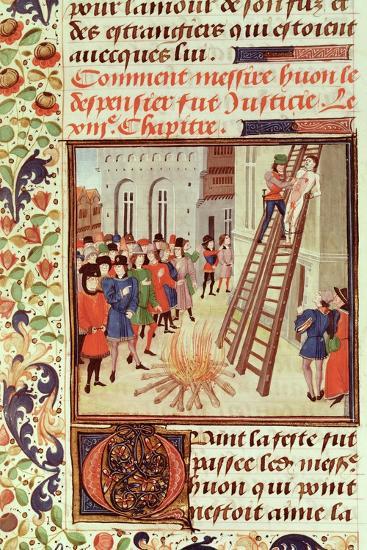 pour lamour de son filz et
des estrangiers qui estoient
auecques lui.
Comment messire huon le
despensier fut Justicie. Le
xiiie. Chapitre.
Quant la feste fut
passee led messre
huon qui point
nestoit aime la